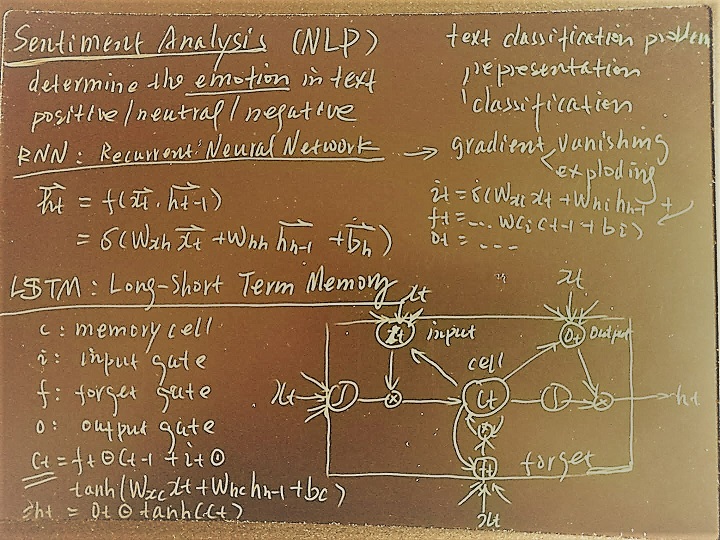 Sentiment Analysis (NLP)
determine the emotion in text
positive/neutral/negative
text classification problem
representation
classification
RNN: Recurrent Neural Network → gradient vanishing
exploding
ht = f(xt, ht-1)
= σ(Wxh xt + Whh ht-1 + bh)
it = σ(Wxi xt + Whi ht-1 +
Wci ct-1 + bi)
ft = ...
ot = ...
LSTM: Long-Short Term Memory
c: memory cell
i: input gate
f: forget gate
o: output gate
ct = ft ⊙ ct-1 + it ⊙
tanh(Wxc xt + Whc ht-1 + bc)
ht = ot ⊙ tanh(ct)
xt
xt
it input
ot output
cell
xt
ct
ht
ft forget
xt